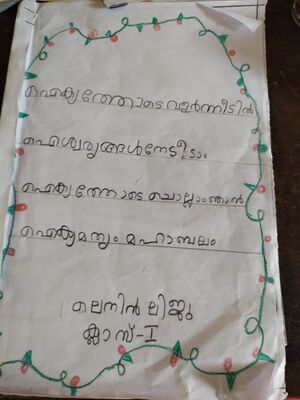 ഐക്യത്തോടെ വളർന്നീടിൽ
ഐശ്വര്യങ്ങൾനേടീടാം
ഐക്യത്തോടെ ചൊല്ലാംഞാൻ
ഐക്യമത്യം മഹാബലം
ലെനിൻ ലിജു
ക്ലാസ്-I